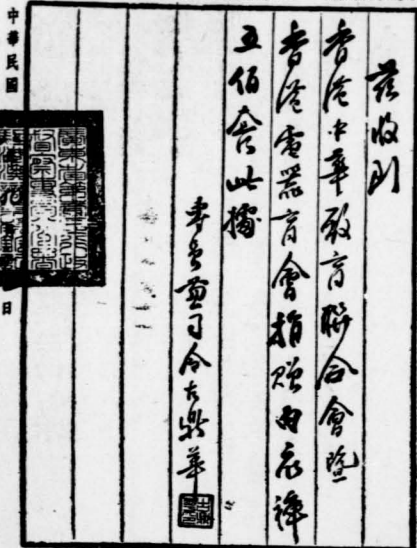 茲收到
香港中華教育聯合會暨
香港電器商會捐贈內衣褲
五佰套此據
專員兼司令古鼎華
中華民國
日